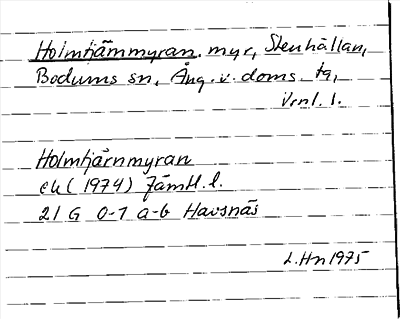 Holmtjämmyran, myr, Stenhällan,
Bodums sn, Ång. v. doms. tg,
Vrnl. l.
Holmtjärnmyran
ek (1974) Jämtl. l.
21 G 0-1 a-b Havsnäs
L.Hn 1975